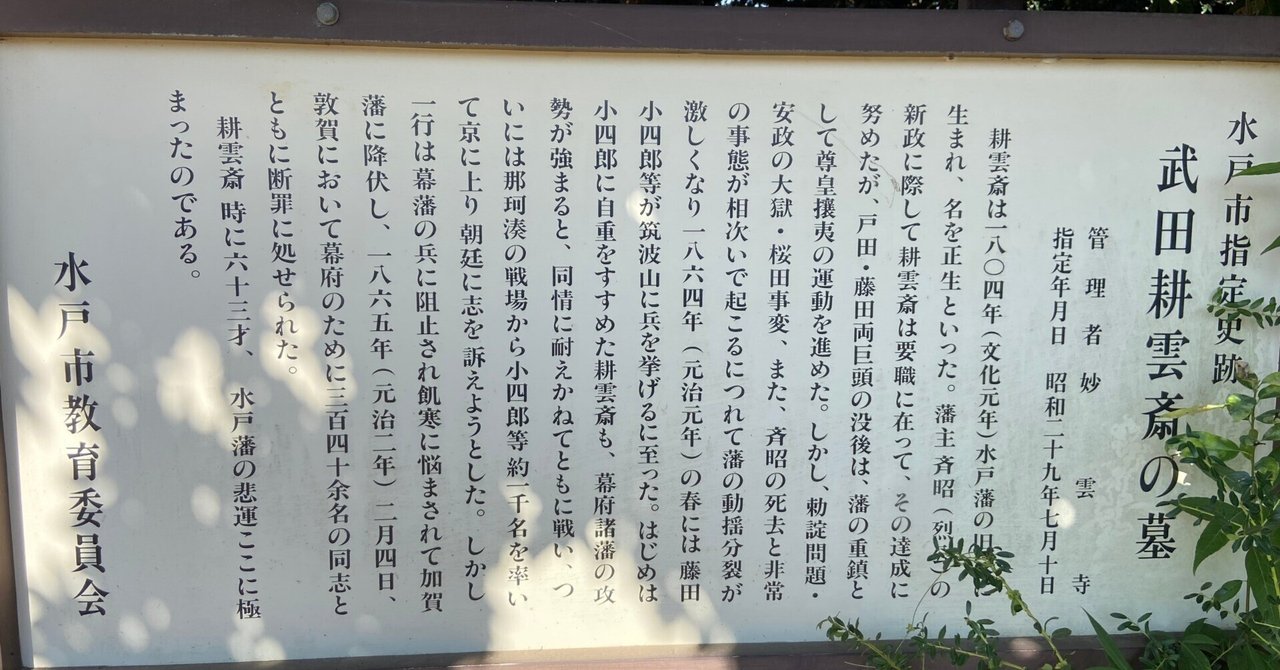 水戸市指定史跡
武田耕雲斎の墓
管理者 妙雲寺
指定年月日 昭和二十九年七月十日
耕雲斎は一八〇四年(文化元年)水戸藩の旧
生まれ、名を正生といった。藩主斉昭(烈公)の
新政に際して耕雲斎は要職に在って、その達成に
努めたが、戸田・藤田両巨頭の没後は、藩の重鎮と
して尊皇攘夷の運動を進めた。しかし、勅諚問題・
安政の大獄・桜田事変、また、斉昭の死去と非常
の事態が相次いで起こるにつれて藩の動揺分裂が
激しくなり一八六四年(元治元年)の春には藤田
小四郎等が筑波山に兵を挙げるに至った。はじめは
小四郎に自重をすすめた耕雲斎も、幕府諸藩の攻
勢が強まると、同情に耐えかねてともに戦い、つ
いには那珂湊の戦場から小四郎等約一千名を率い
て京に上り朝廷に志を訴えようとした。しかし
一行は幕藩の兵に阻止され飢寒に悩まされて加賀
藩に降伏し、一八六五年(元治二年)二月四日、
敦賀において幕府のために三百四十余名の同志と
ともに断罪に処せられた。
耕雲斎 時に六十三才、 水戸藩の悲運ここに極
まったのである。
水戸市教育委員会